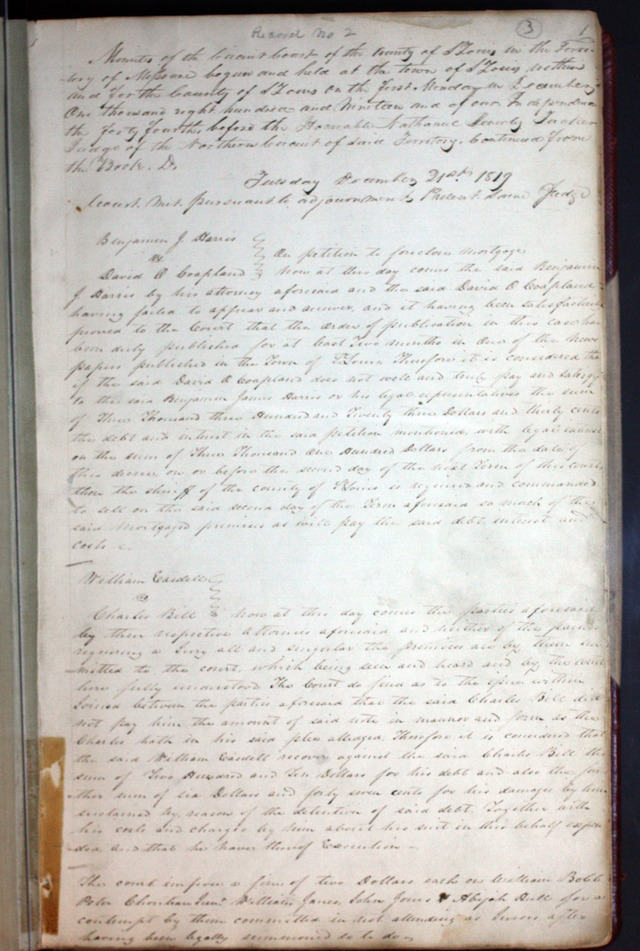 Record No 2 3 1
Minutes of the Circuit Court of the County of St Louis in the Terri-
tory of Missouri begun and held at the town of St Louis within
and for the County of St Louis on the first Monday in December
One thousand eight hundred and Nineteen and of our Independence
the forty fourth before the Honorable Nathaniel Beverly Tucker
Judge of the Northern Circuit of said Territory. Continued from
the Book. D.
Tuesday December 21st 1819
Court met pursuant to adjournment, Present Same Judge
Benjamin J Harris
vs On petition to foreclose mortgage
David O Coapland Now at this day comes the said Benjamin
J Harris by his attorney aforesaid and the said David O Coapland
having failed to appear and answer, and it having been satisfactorily
proved to the Court that the order of publication in this case has
been duly published for at least Two months in One of the News
papers published in the Town of St Louis Therefore it is considered that
if the said David O Coapland does not well and truly pay and satisfy
to the said Benjamin James Harris or his legal representatives the sum
of Three Thousand three Hundred and Twenty three Dollars and thirty cents
the debt and interest in the said petition mentioned, with legal interest
on the sum of Three Thousand One Hundred Dollars from the date of
this decree, on or before the second day of the next Term of this Court,
then the sheriff of the county of St Louis is required and commanded
to sell on the said second day of the Term aforesaid so much of the
said Mortgaged premises as will pay the said debt interest and
costs
William Cardell
vs
Charles Bill Now at this day comes the parties aforesaid
by their respective attornies aforesaid and neither of the parties
requiring a Jury all and singular the premises are by them sub-
mitted to the court, which being seen and heard and by the court
here fully understood The Court do find as to the issue within
Joined between the parties aforesaid that the said Charles Bill did
not pay him the amount of said note in manner and form as the
Charles hath in his said plea alledged. Therefore it is considered that
the said William Cardell recover against the said Charles Bill the
sum of Two Hundred and Ten Dollars for his debt and also the fur-
ther sum of six Dollars and forty seven cents for his damages by him
sustained by reason of the detention of said debt. Together with
his costs and charges by him about his suit in this behalf expen-
ded, and that he have thereof Execution
The court impose a fine of two Dollars each on William Bobb
Peter Chouteau Junr William James John Jones & Abijah Hull for a
contempt by them committed in not attending as Jurors after
having been legally summoned so to do